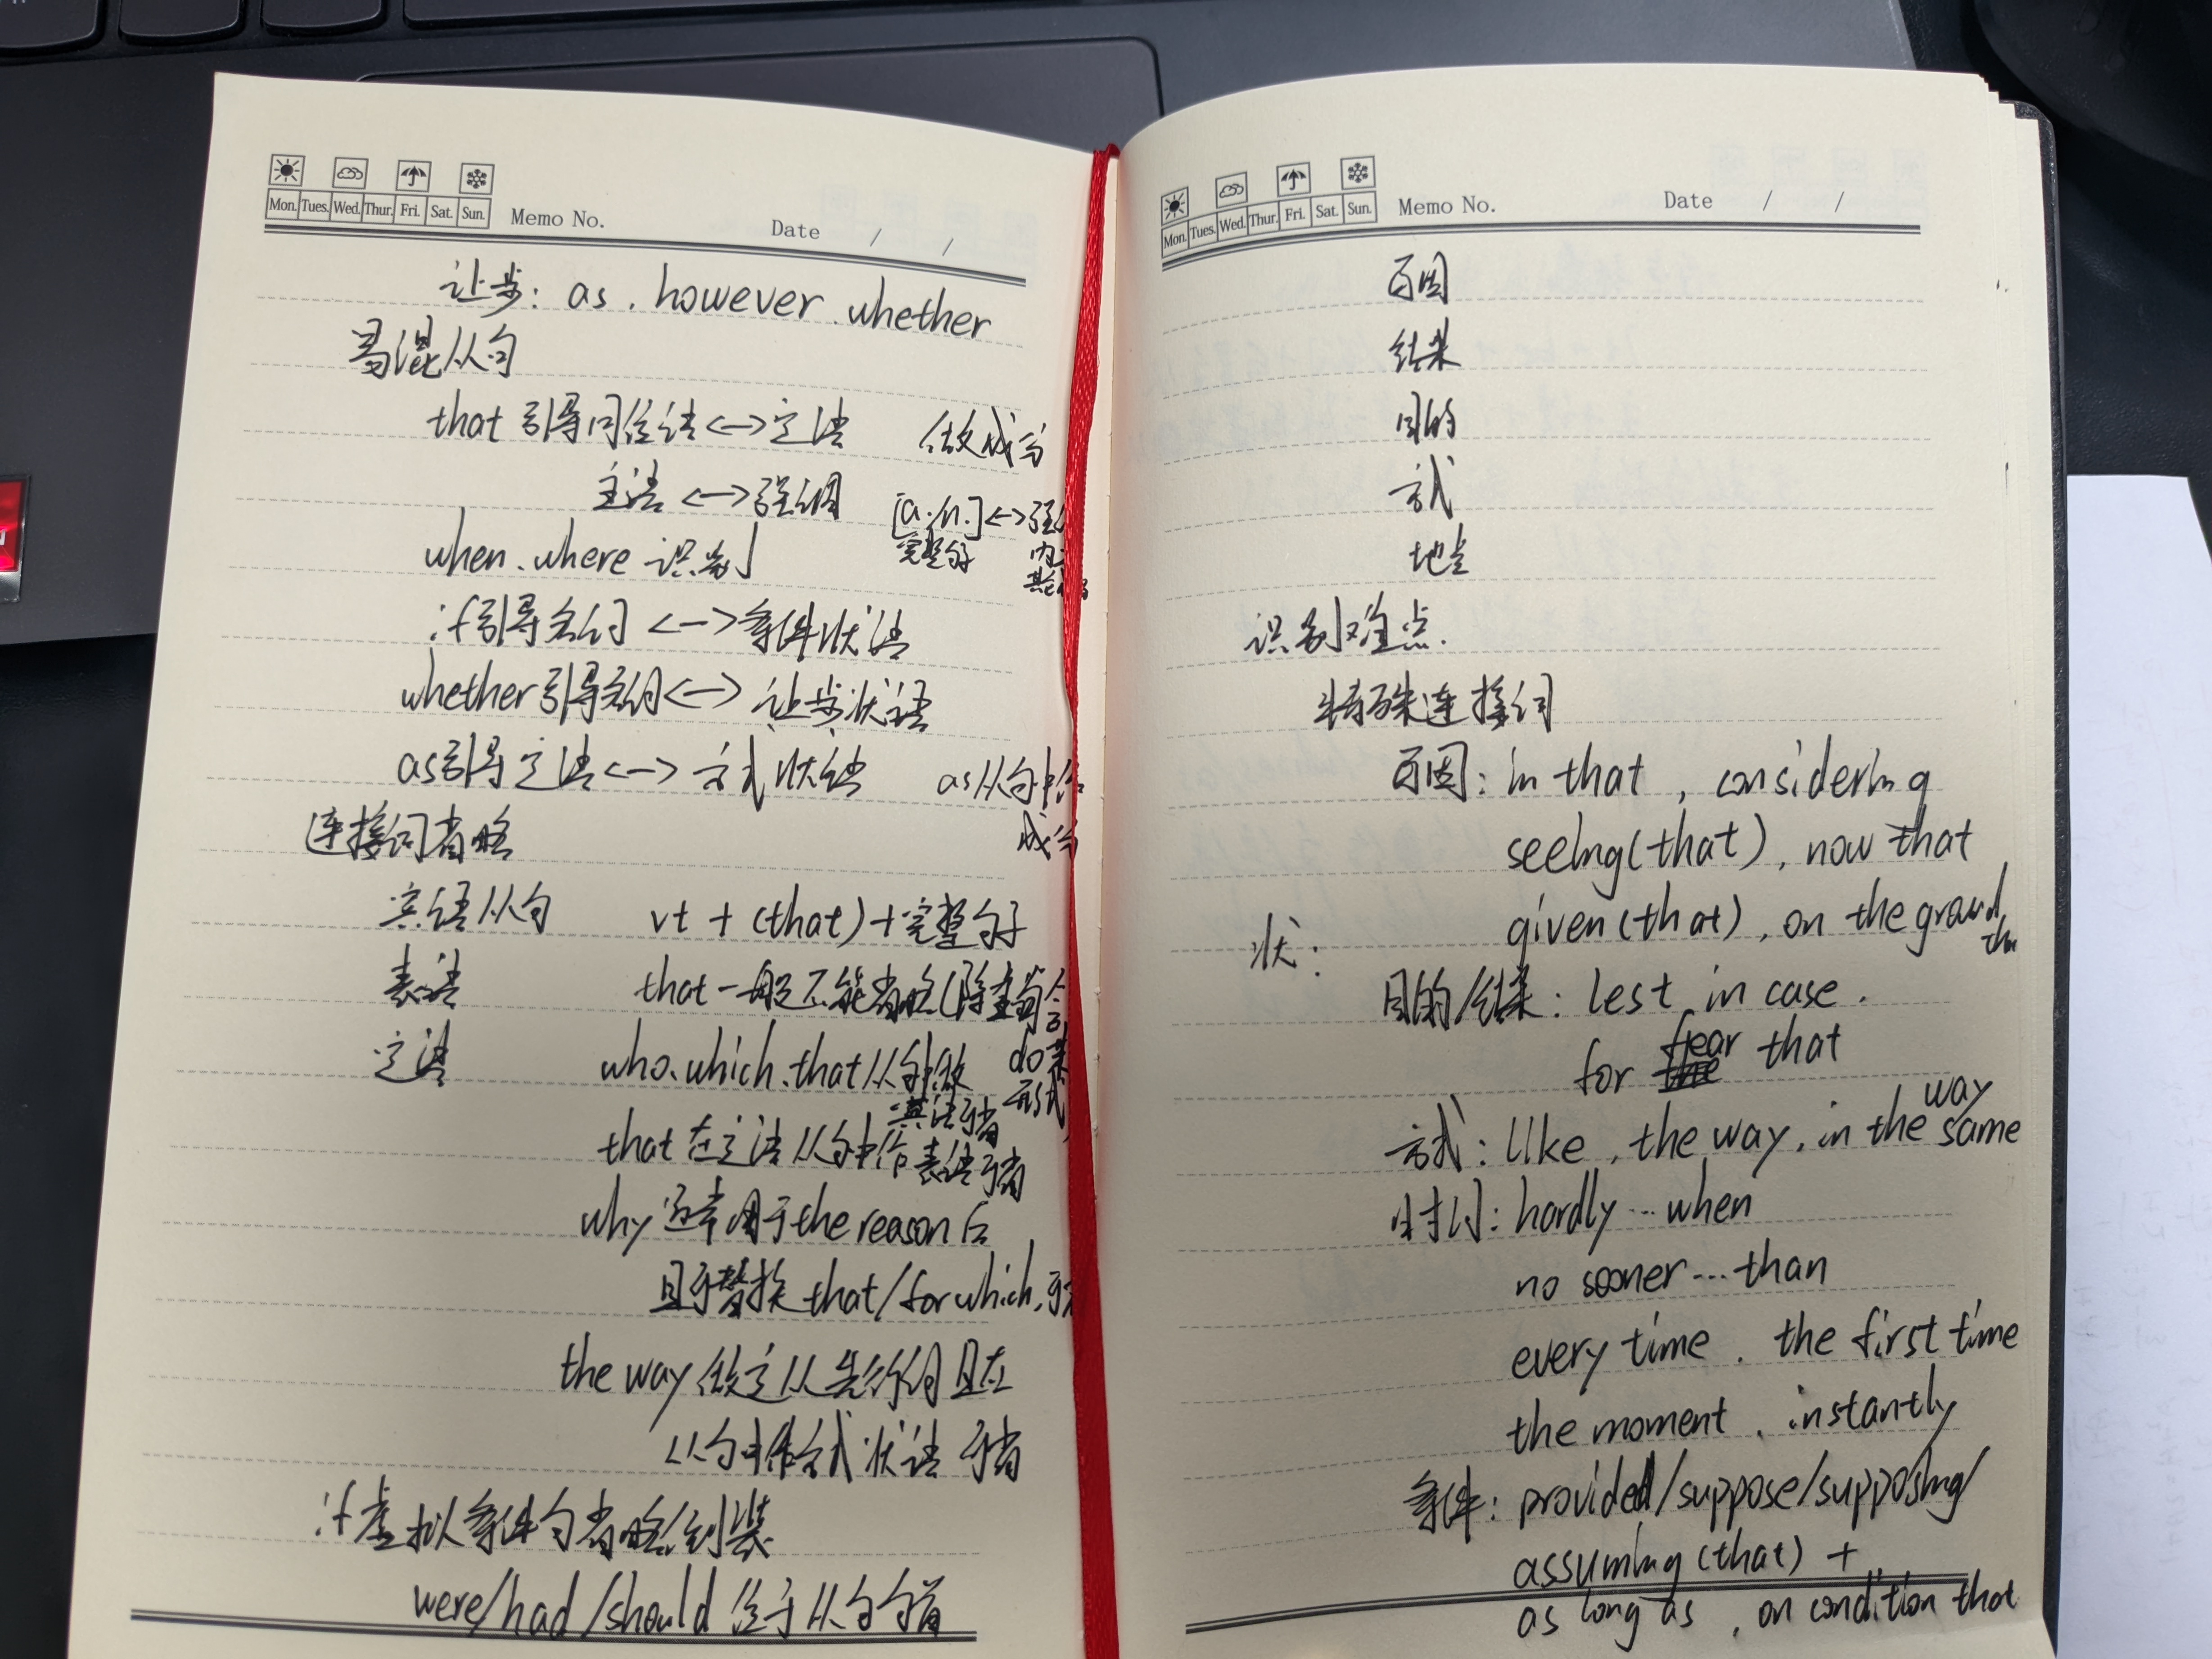 Mon. Tues. Wed. Thur. Fri. Sat. Sun. Memo No. Date / /
让步: as. however. whether
易混从句
that引导同位语<->定语 做成分
主语<->强调 [a./n.]<->
完整句
when. where 识别
if引导名词<->条件状语
whether引导名词<->让步状语
as引导定语<->方式状语 as从句中作
成分
连接词省略
宾语从句 vt + (that)+完整句子
表语 that一般不能省略(除查前含
do某
形式
定语 who. which. that从句中做
宾语可省
that在定语从句中作表语可省
why通常用于the reason后
且可替换that/for which.可
the way做定从先行词且在
从句中作方式状语可省
if虚拟条件句省略倒装
were/had/should位于从句句首
Mon. Tues. Wed. Thur. Fri. Sat. Sun. Memo No. Date / /
原因
结果
目的
方式
地点
识别难点.
特殊连接词
原因: in that, considering
seeing(that), now that
given(that), on the ground
状:
目的/结果: lest in case.
for fear that
方式: like, the way, in the same way
时间: hardly...when
no sooner...than
every time. the first time
the moment. instantly
条件: provided/suppose/supposing/
assuming(that) +
as long as, on condition that